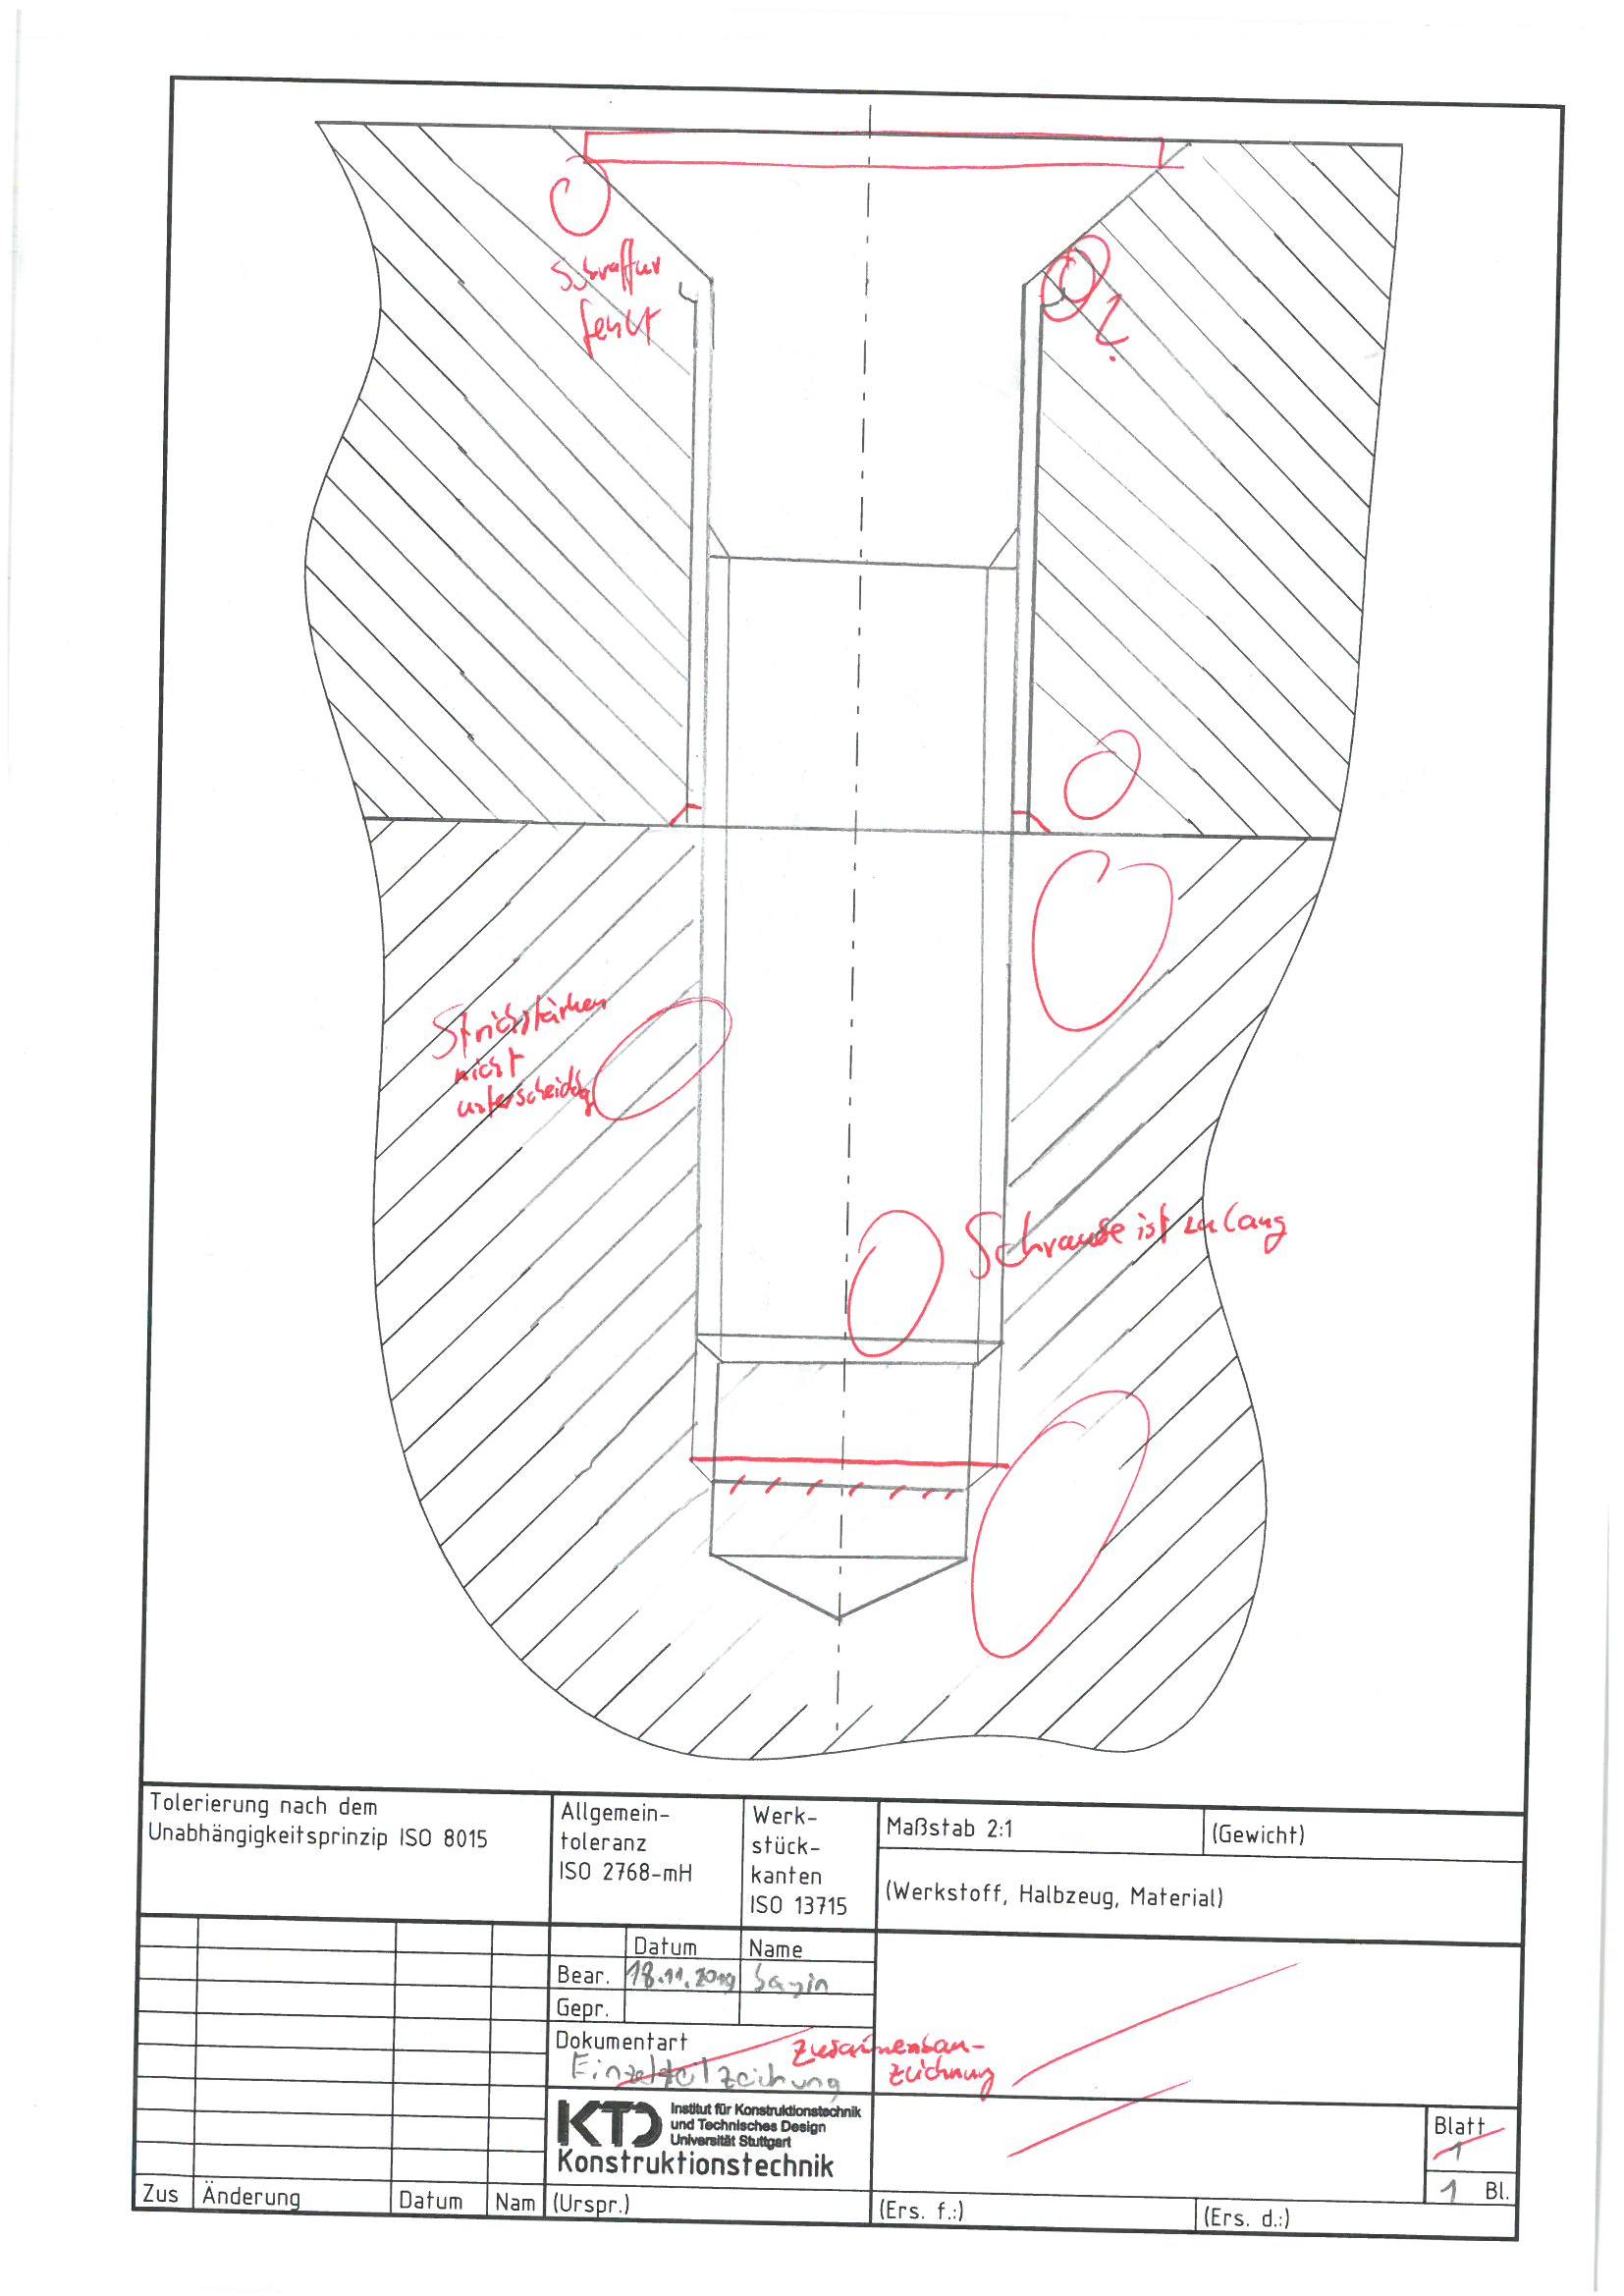 Schraffur
fehlt
?
Strichstärken
nicht
unterscheidbar
Schraube ist zu lang
Tolerierung nach dem
Unabhängigkeitsprinzip ISO 8015
Allgemein-
toleranz
ISO 2768-mH
Werk-
stück-
kanten
ISO 13715
Maßstab 2:1
(Gewicht)
(Werkstoff, Halbzeug, Material)
Datum
Name
Bear.
18.11.2019
Gepr.
Dokumentart
Einzelteilzeichung
Zusammenbau-
zeichnung
KTD
Institut für Konstruktionstechnik
und Technisches Design
Universität Stuttgart
Konstruktionstechnik
Blatt
1
1 Bl.
Zus
Änderung
Datum
Nam
(Urspr.)
(Ers. f.:)
(Ers. d.:)